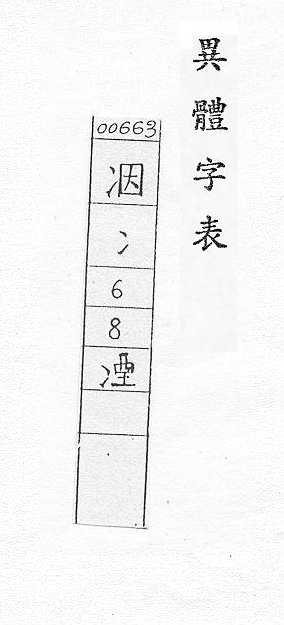 異體字表
00663
冫
6
8